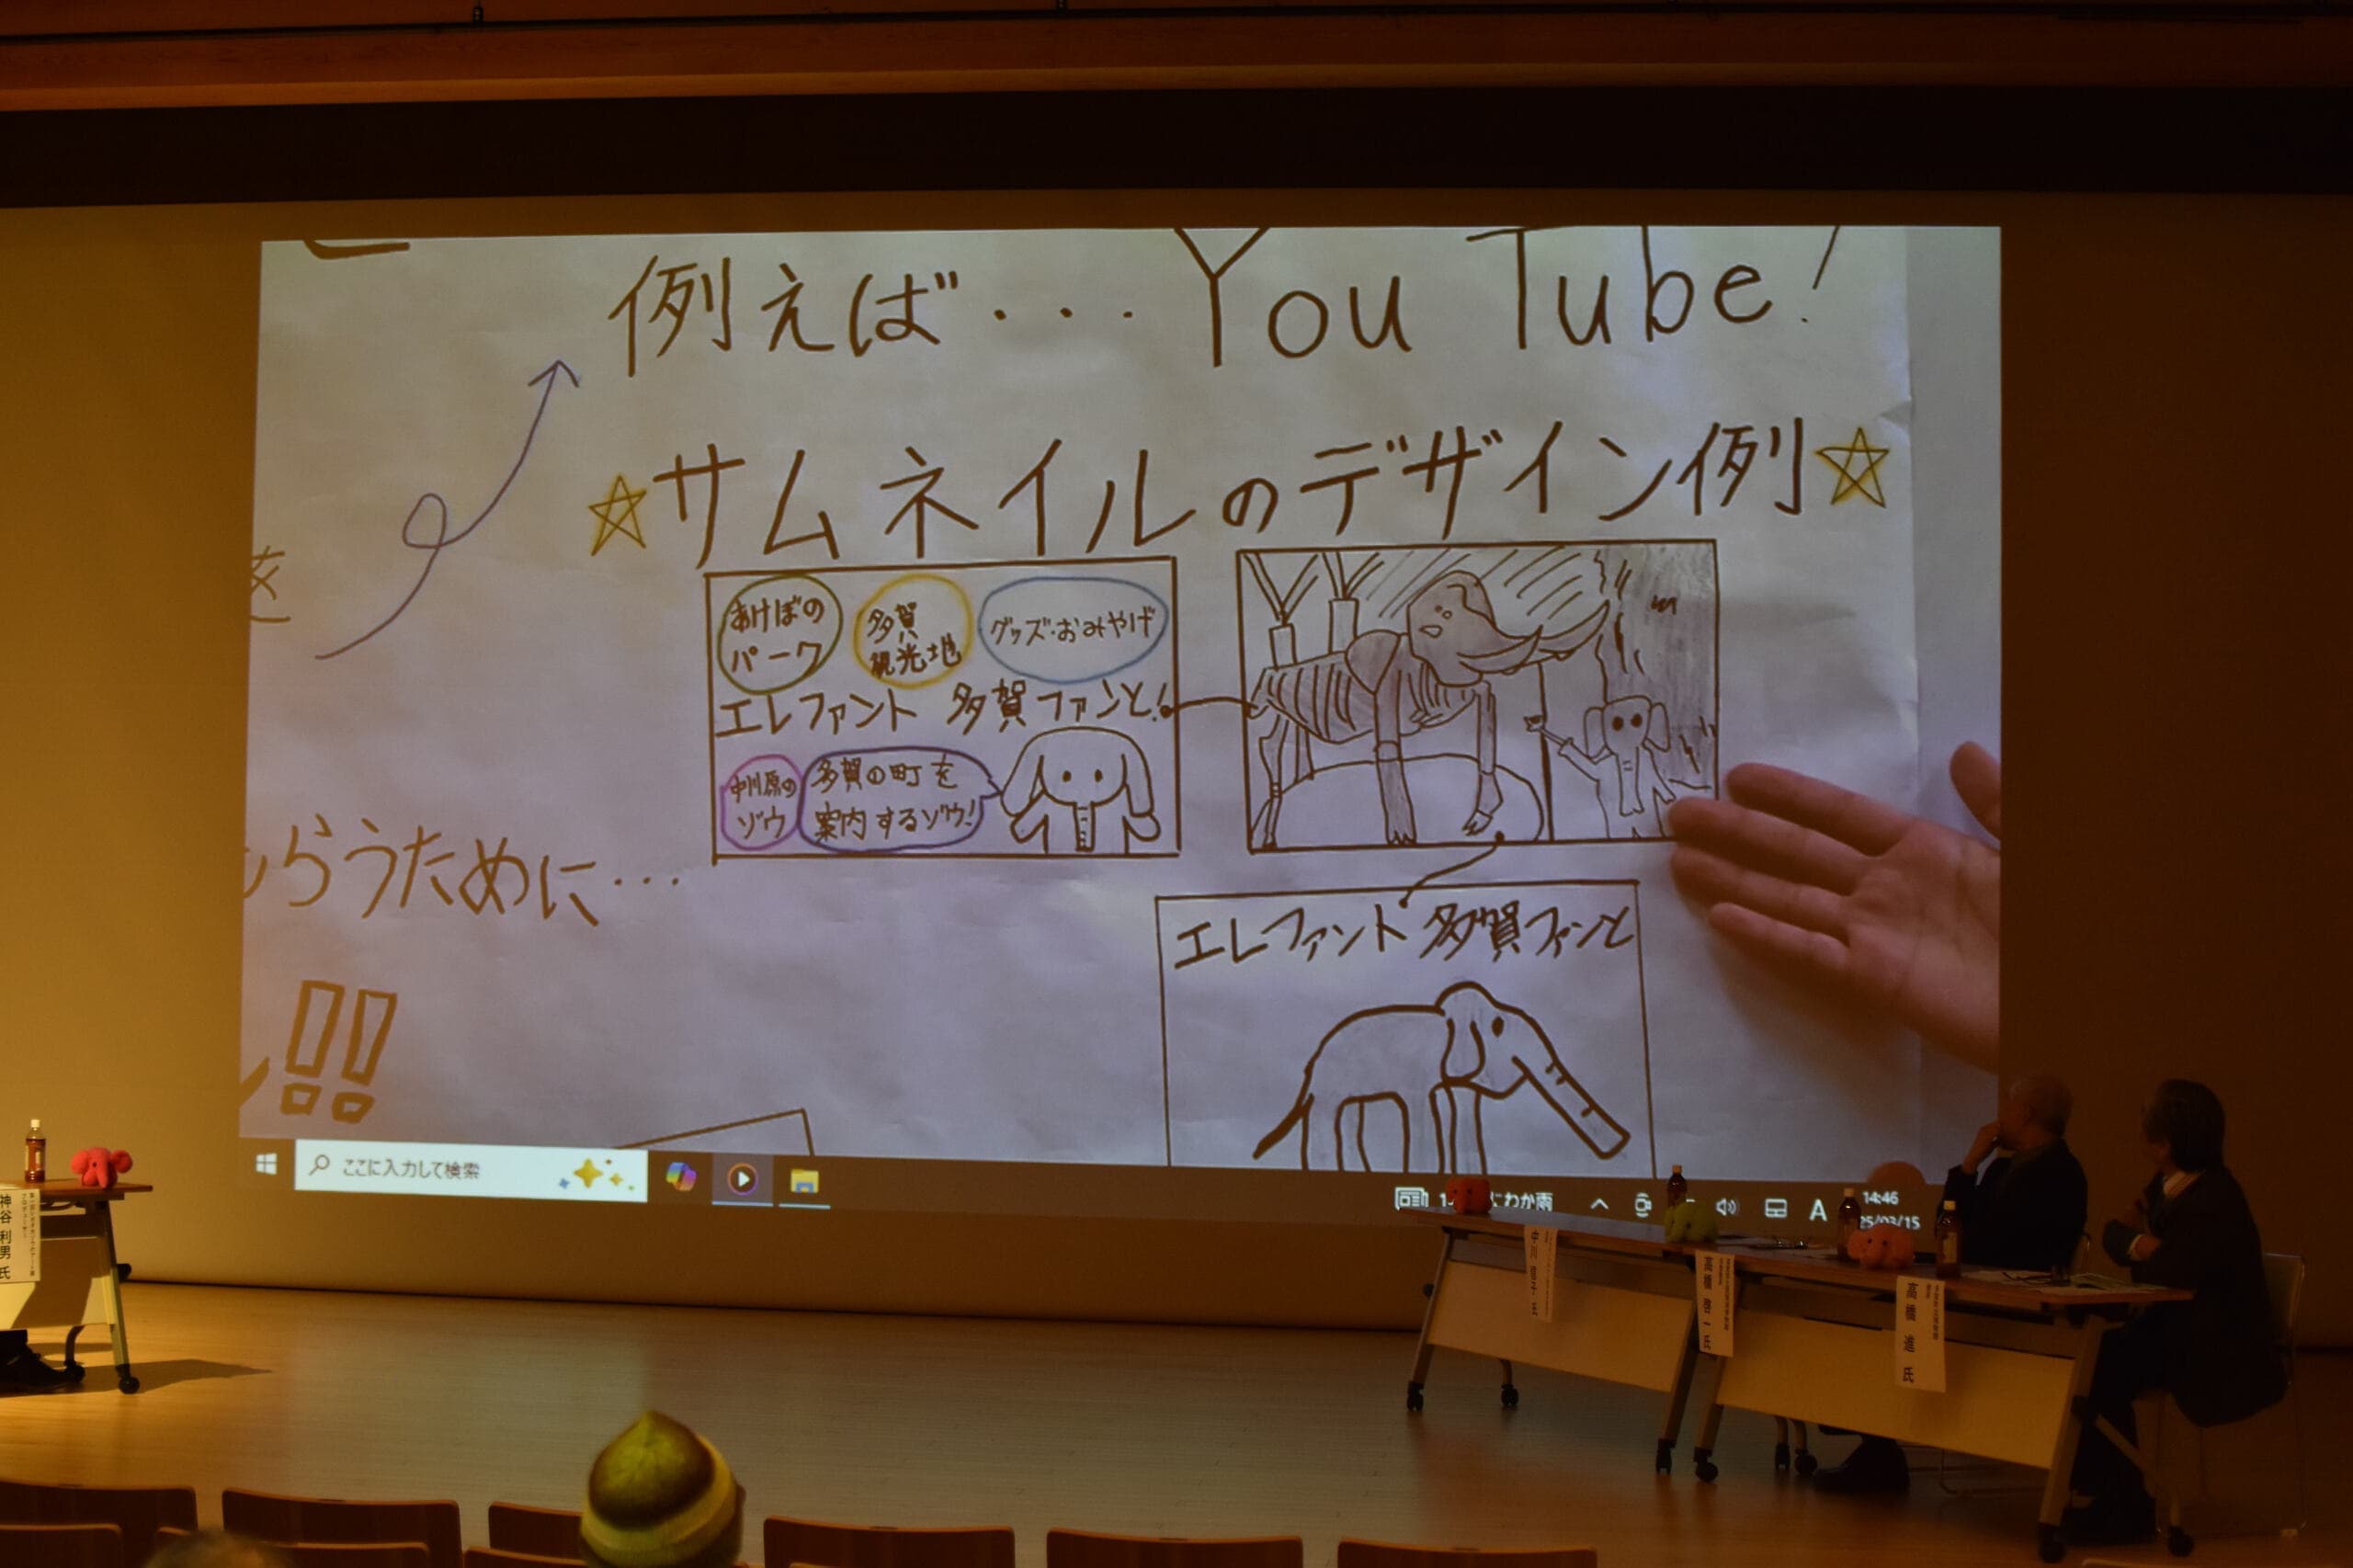 例えば・・・YouTube!
☆サムネイルのデザイン例☆
を
あけぼの
パーク
多賀
観光地
グッズ・おみやげ
エレファント 多賀ファンと!
中川原の
ゾウ
多賀の町を
案内するゾウ!
らうために…
!!
エレファント 多賀ファンと
ここに入力して検索
にわか雨
A
14:46
25/03/15
神谷 利男 氏
高橋 啓一 氏
高橋 進 氏